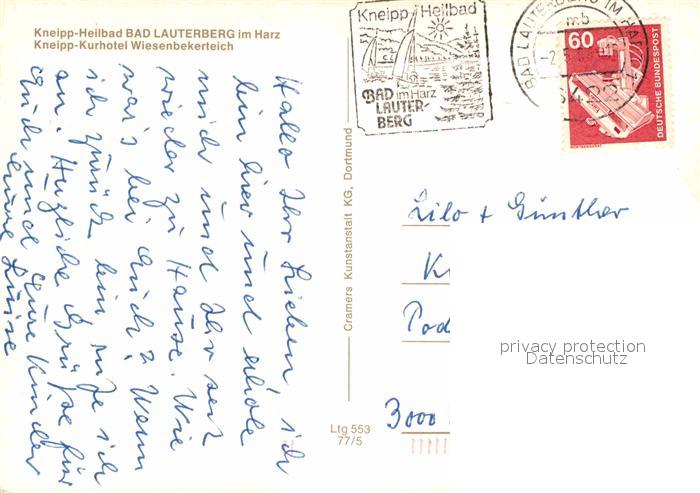 Kneipp-Heilbad BAD LAUTERBERG im Harz
Kneipp-Kurhotel Wiesenbekerteich
Hallo Ihr Lieben ich
bin hier und erhole
mich und Ihr seit
wieder zu Hause. Wie
war's bei Euch? Wenn
ich zurück bin rufe ich
an. Herzliche Grüße für
Euch und Eure Kinder
Eure Luise
Cramers Kunstanstalt KG, Dortmund
Ltg 553
77/5
Kneipp Heilbad
BAD im Harz
LAUTER-
BERG
BAD LAUTERBERG IM HARZ
mb
60
DEUTSCHE BUNDESPOST
Lilo + Günther
K
Pod
3000
privacy protection
Datenschutz